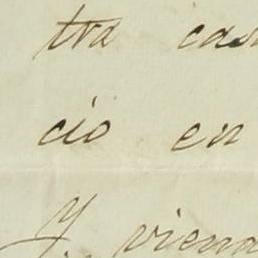 tra cas
cio en
Y viena